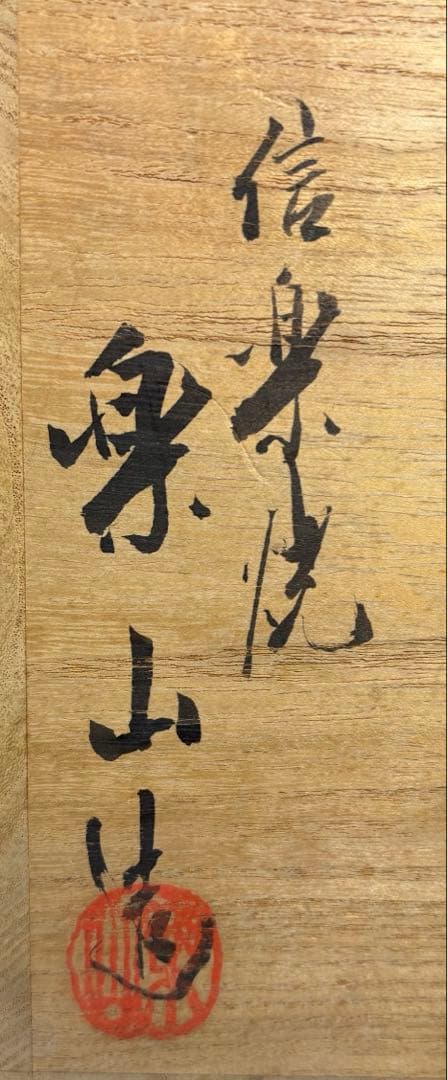 信楽焼
楽山造